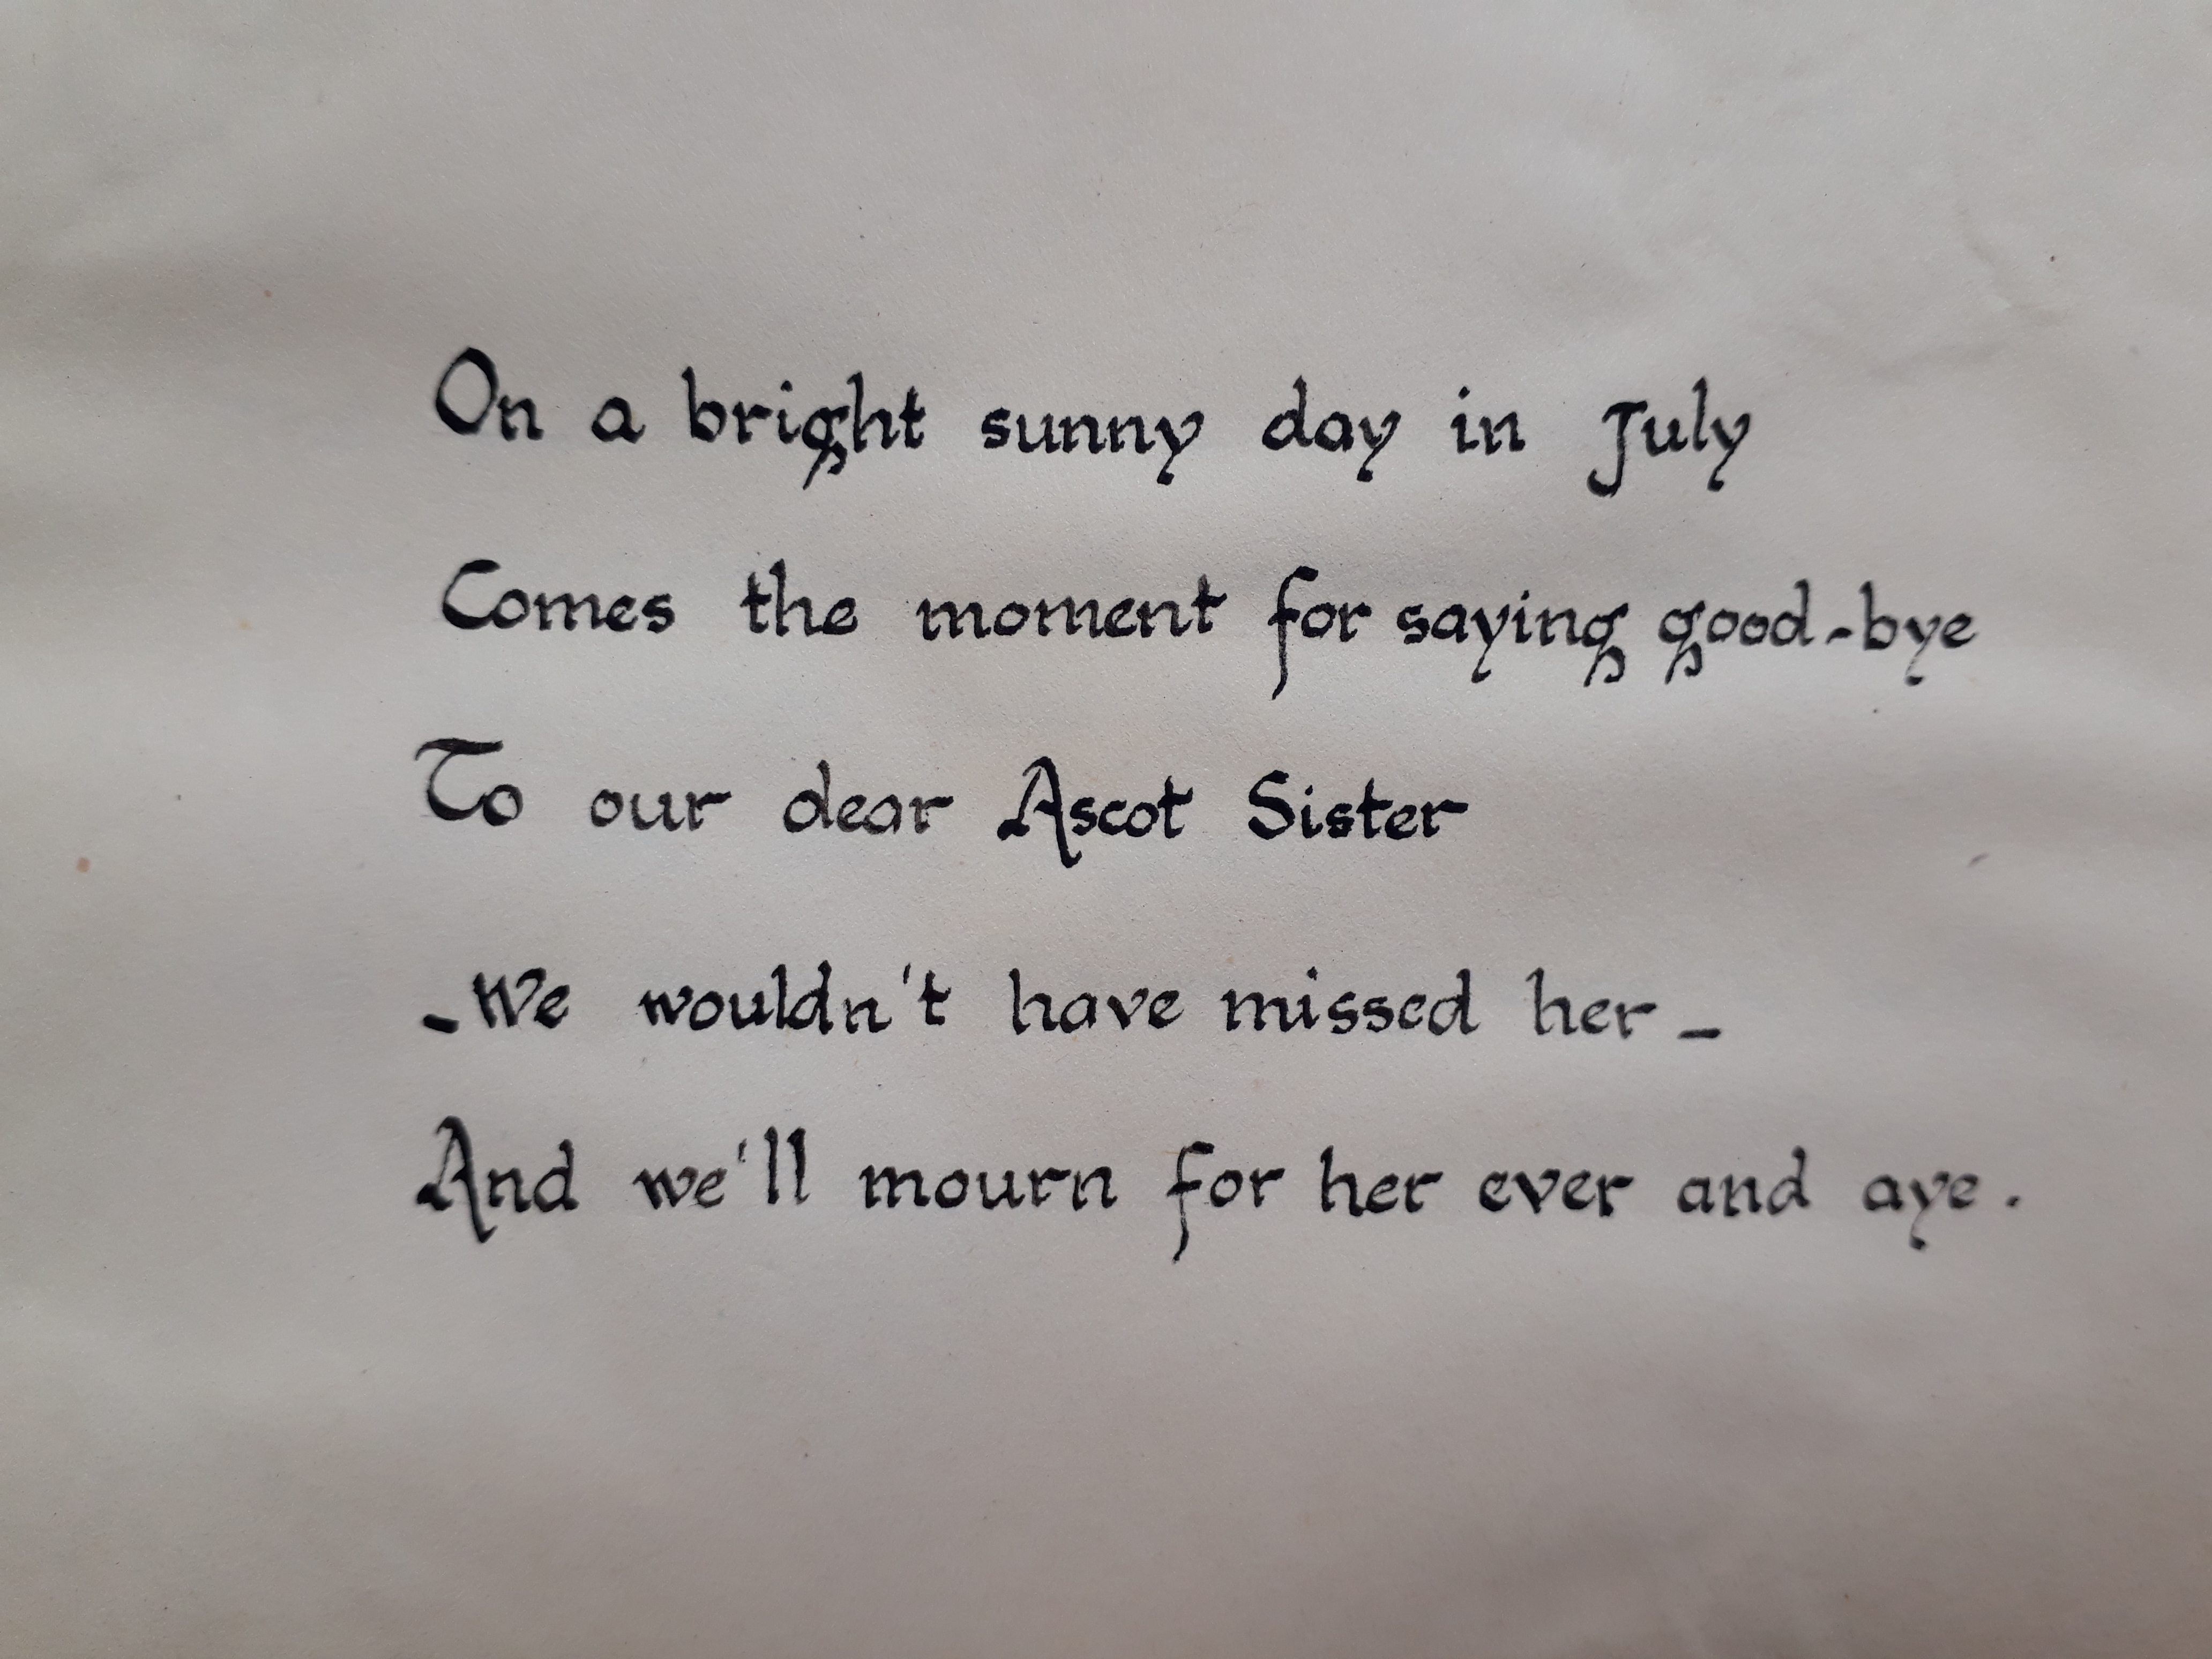 On a bright sunny day in July
Comes the moment for saying good-bye
To our dear Ascot Sister
-We wouldn't have missed her-
And we'll mourn for her ever and aye.